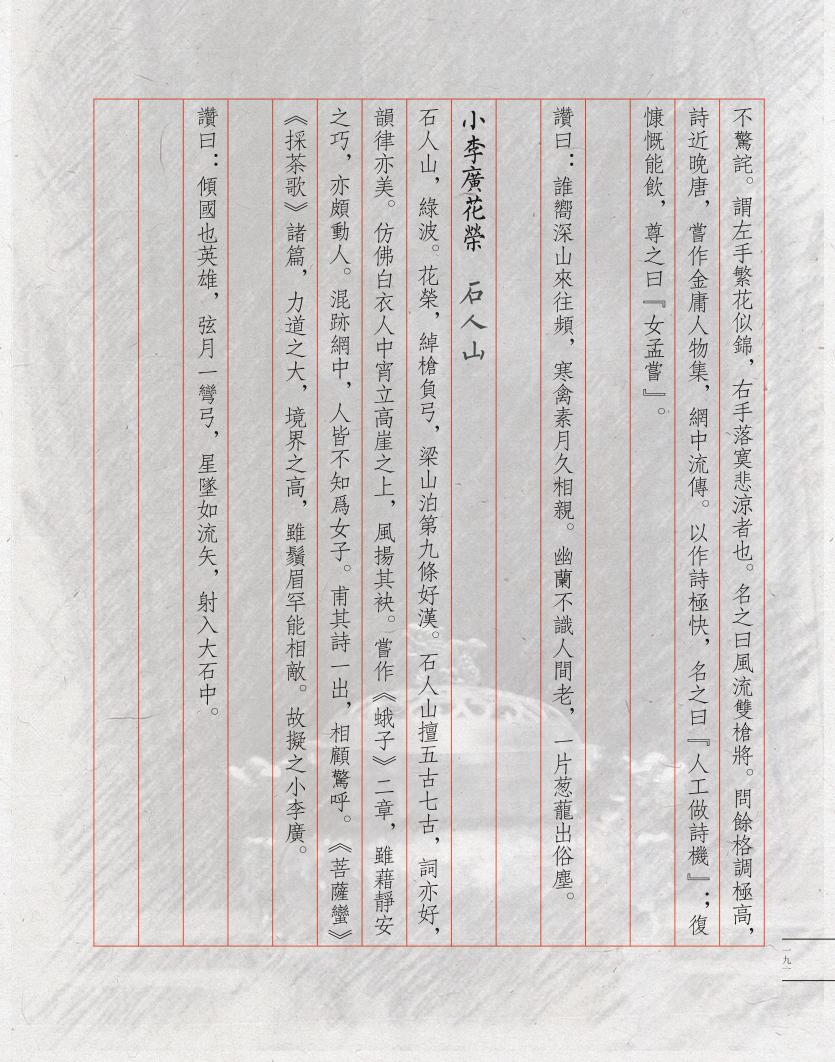 不驚詫。謂左手繁花似錦，右手落寞悲涼者也。名之曰風流雙槍將。問餘格調極高，
詩近晚唐，嘗作金庸人物集，網中流傳。以作詩極快，名之曰『人工做詩機』；復
慷慨能飲，尊之曰『女孟嘗』。
讚曰：誰嚮深山來往頻，寒禽素月久相親。幽蘭不識人間老，一片葱蘢出俗塵。
小李廣花榮　石人山
石人山，綠波。花榮，綽槍負弓，梁山泊第九條好漢。石人山擅五古七古，詞亦好，
韻律亦美。仿佛白衣人中宵立高崖之上，風揚其袂。嘗作《蛾子》二章，雖藉靜安
之巧，亦頗動人。混跡網中，人皆不知爲女子。甫其詩一出，相顧驚呼。《菩薩蠻》
《採茶歌》諸篇，力道之大，境界之高，雖鬚眉罕能相敵。故擬之小李廣。
讚曰：傾國也英雄，弦月一彎弓，星墜如流矢，射入大石中。
一九一